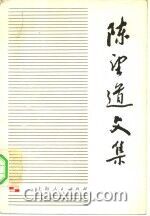 陈望道文集
Chaoxing.com